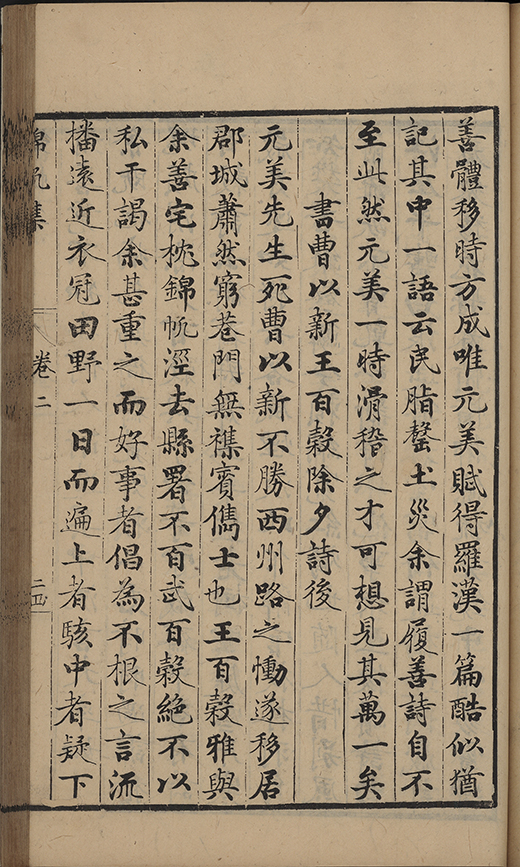 善體移時方成唯元美賦得羅漢一篇酷似猶
記其中一語云民脂罄土災余謂履善詩自不
至此然元美一時滑稽之才可想見其萬一矣
書曹以新王百穀除夕詩後
元美先生死曹以新不勝西州路之慟遂移居
郡城蕭然窮巷門無襍賓儁士也王百穀雅與
余善宅枕錦帆涇去縣署不百武百穀絶不以
私干謁余甚重之而好事者倡為不根之言流
播遠近衣冠田野一日而遍上者駭中者疑下
錦帆集
卷二
二四